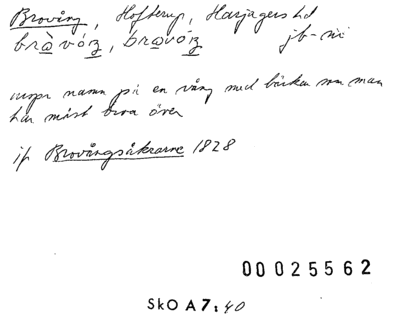 Brovång, Hofterup, Harjagers hd
bràvóʒ, bravóʒ jb-ni
urspr namn på en vång med bäcken som man
har måst broa över
jf Brovångsåkrarne 1828
00025562
SkO A7:40